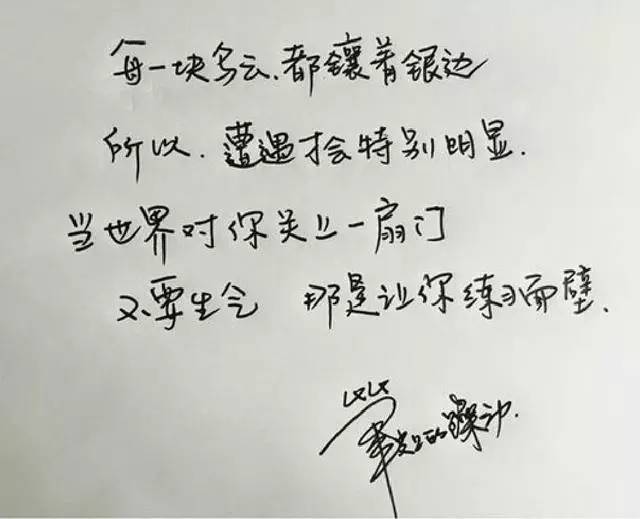 每一块乌云、都镶着银边
所以、遭遇才会特别明显.
当世界对你关上一扇门
不要生气 那是让你练习面壁.
笔尖上的躁动.